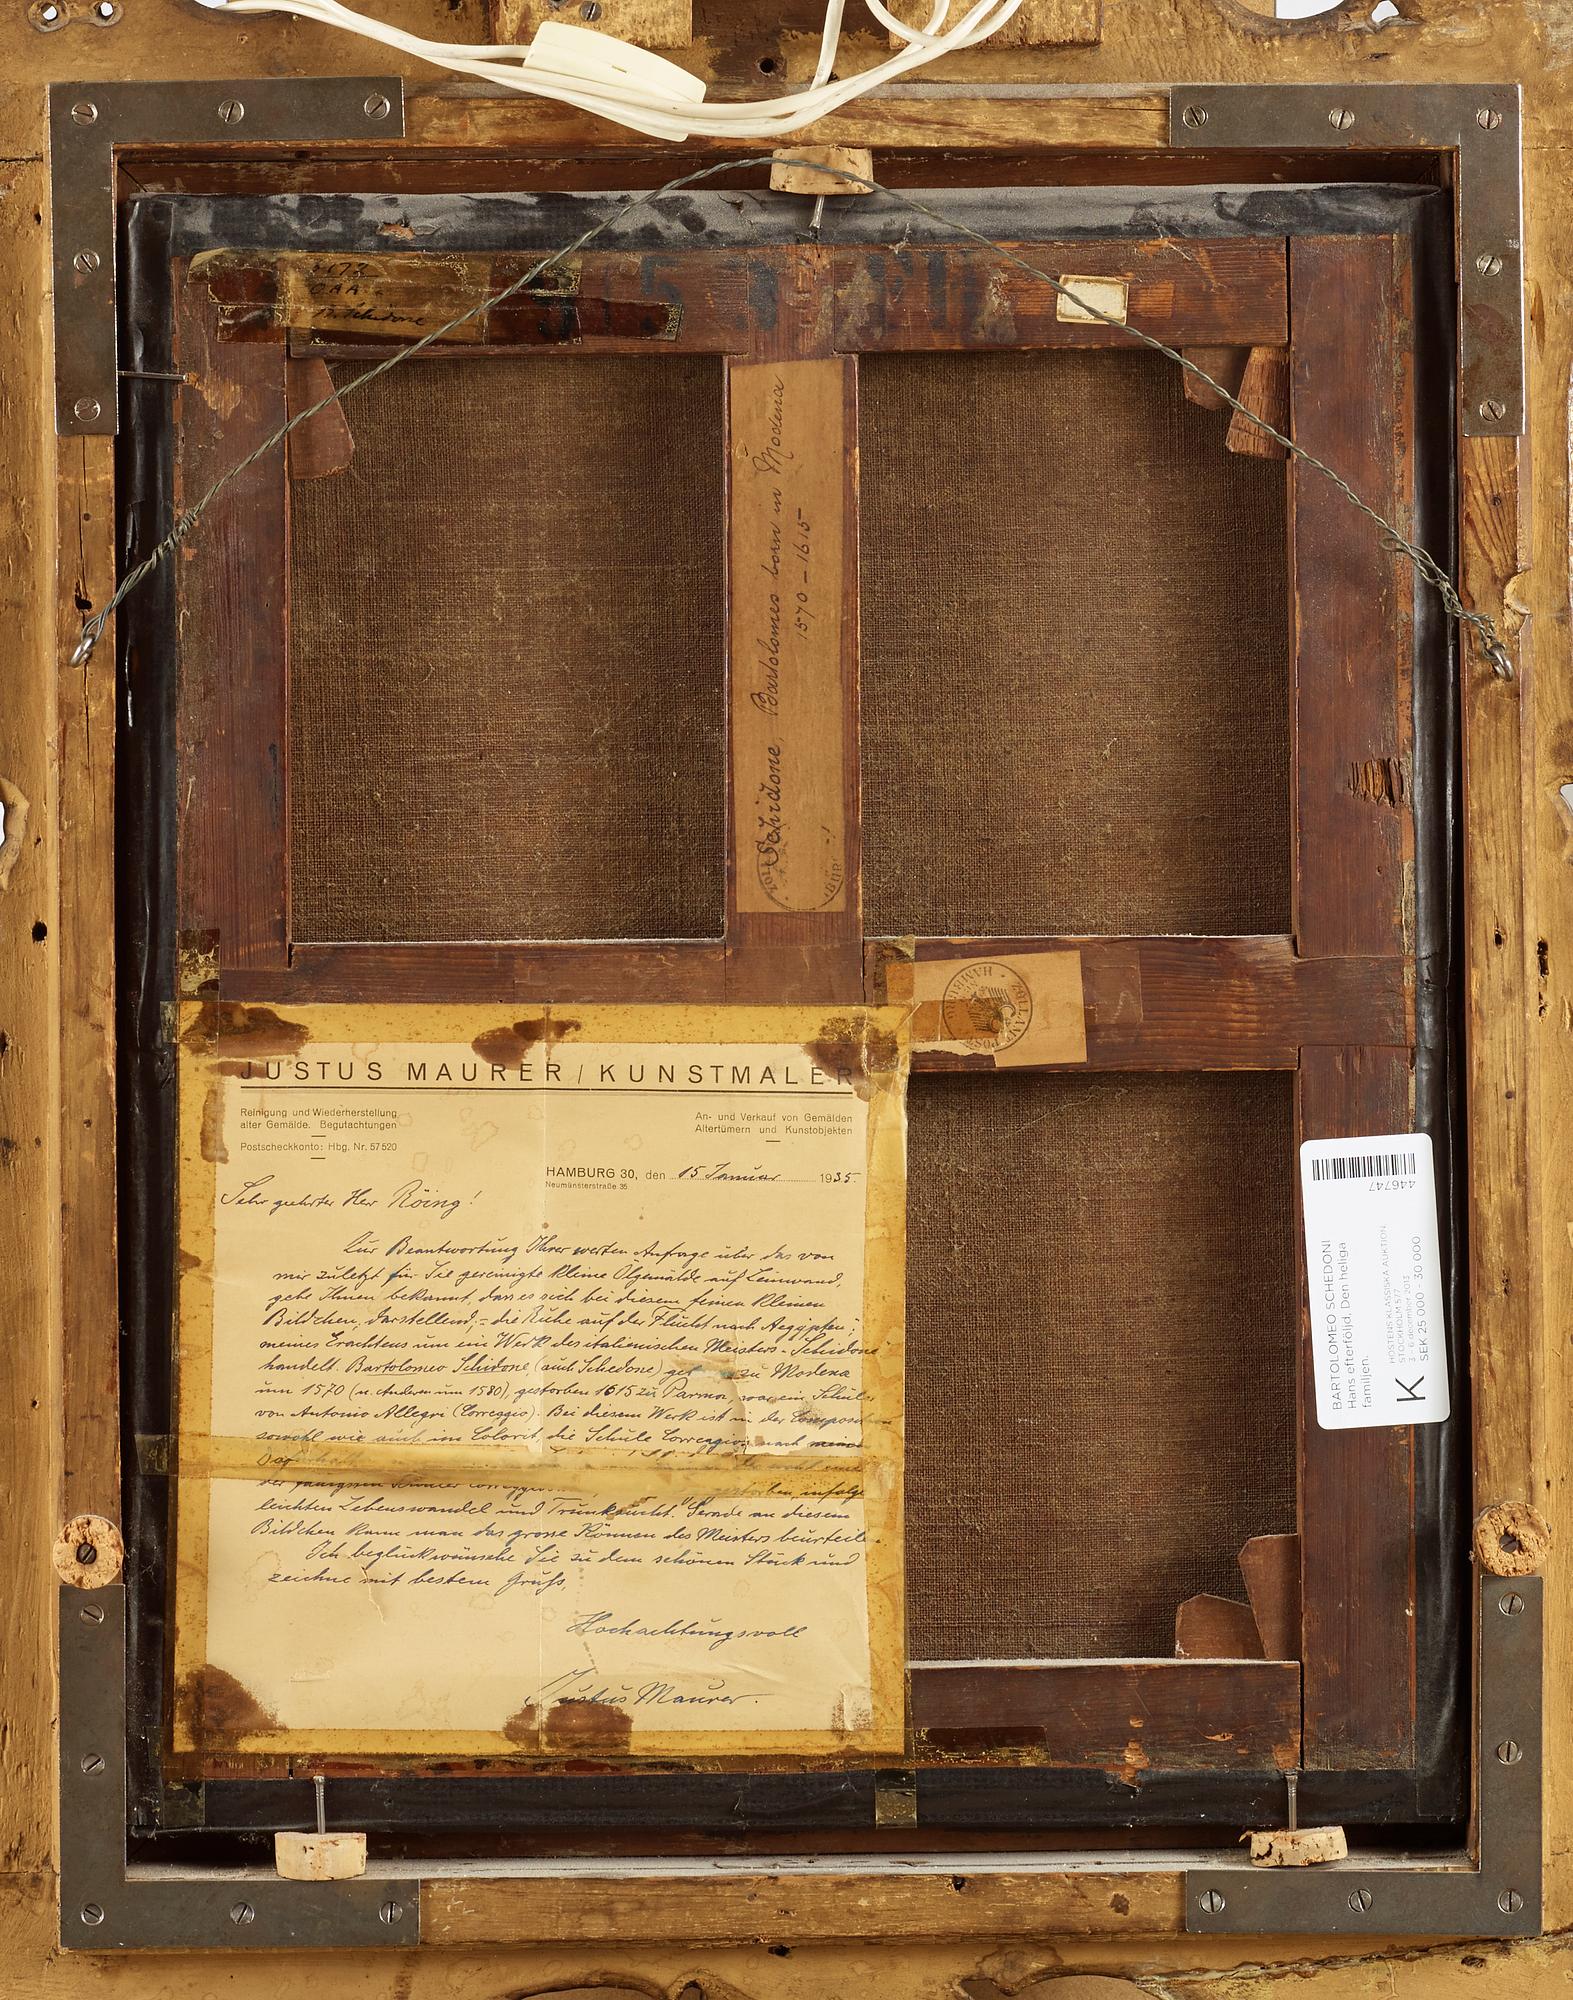 B. Schidone
Schidone, Bartolomes born in Modena
1570 – 1615
JUSTUS MAURER / KUNSTMALER
Reinigung und Wiederherstellung
alter Gemälde. Begutachtungen
Postscheckkonto: Hbg. Nr. 57520
An- und Verkauf von Gemälden
Altertümern und Kunstobjekten
HAMBURG 30, den 15 Januar 1935.
Neumünsterstraße 35
Sehr geehrter Herr Röing!
Zur Beantwortung Ihrer werten Anfrage über das von
mir zuletzt für Sie gereinigte kleine Ölgemälde auf Leinwand,
gebe Ihnen bekannt, dass es sich bei diesem feinen kleinen
Bildchen, darstellend, - die Ruhe auf der Flucht nach Aegypten;
meines Erachtens um ein Werk des italienischen Meisters - Schidone
handelt. Bartolomeo Schidone (auch Schedone) geb zu Modena
um 1570 (n. Anderen um 1580), gestorben 1615 zu Parma, war ein Schüler
von Antonio Allegri (Correggio). Bei diesem Werk ist in der Composition
sowohl wie auch im Colorit, die Schule Correggios nach meiner
der jüngsten Schüler gestorben, infolge
leichten Lebenswandel und Trunksucht. Gerade an diesem
Bildchen kann man das grosse Können des Meisters beurteilen.
Ich beglückwünsche Sie zu dem schönen Stück und
zeichne mit bestem Gruss,
Hochachtungsvoll
Justus Maurer.
446747
BARTOLOMEO SCHEDONI
Hans efterföljd. Den heliga
familjen.
HÖSTENS KLASSISKA AUKTION
STOCKHOLM 577
3 - 6 december 2013
SEK 25 000 - 30 000
K